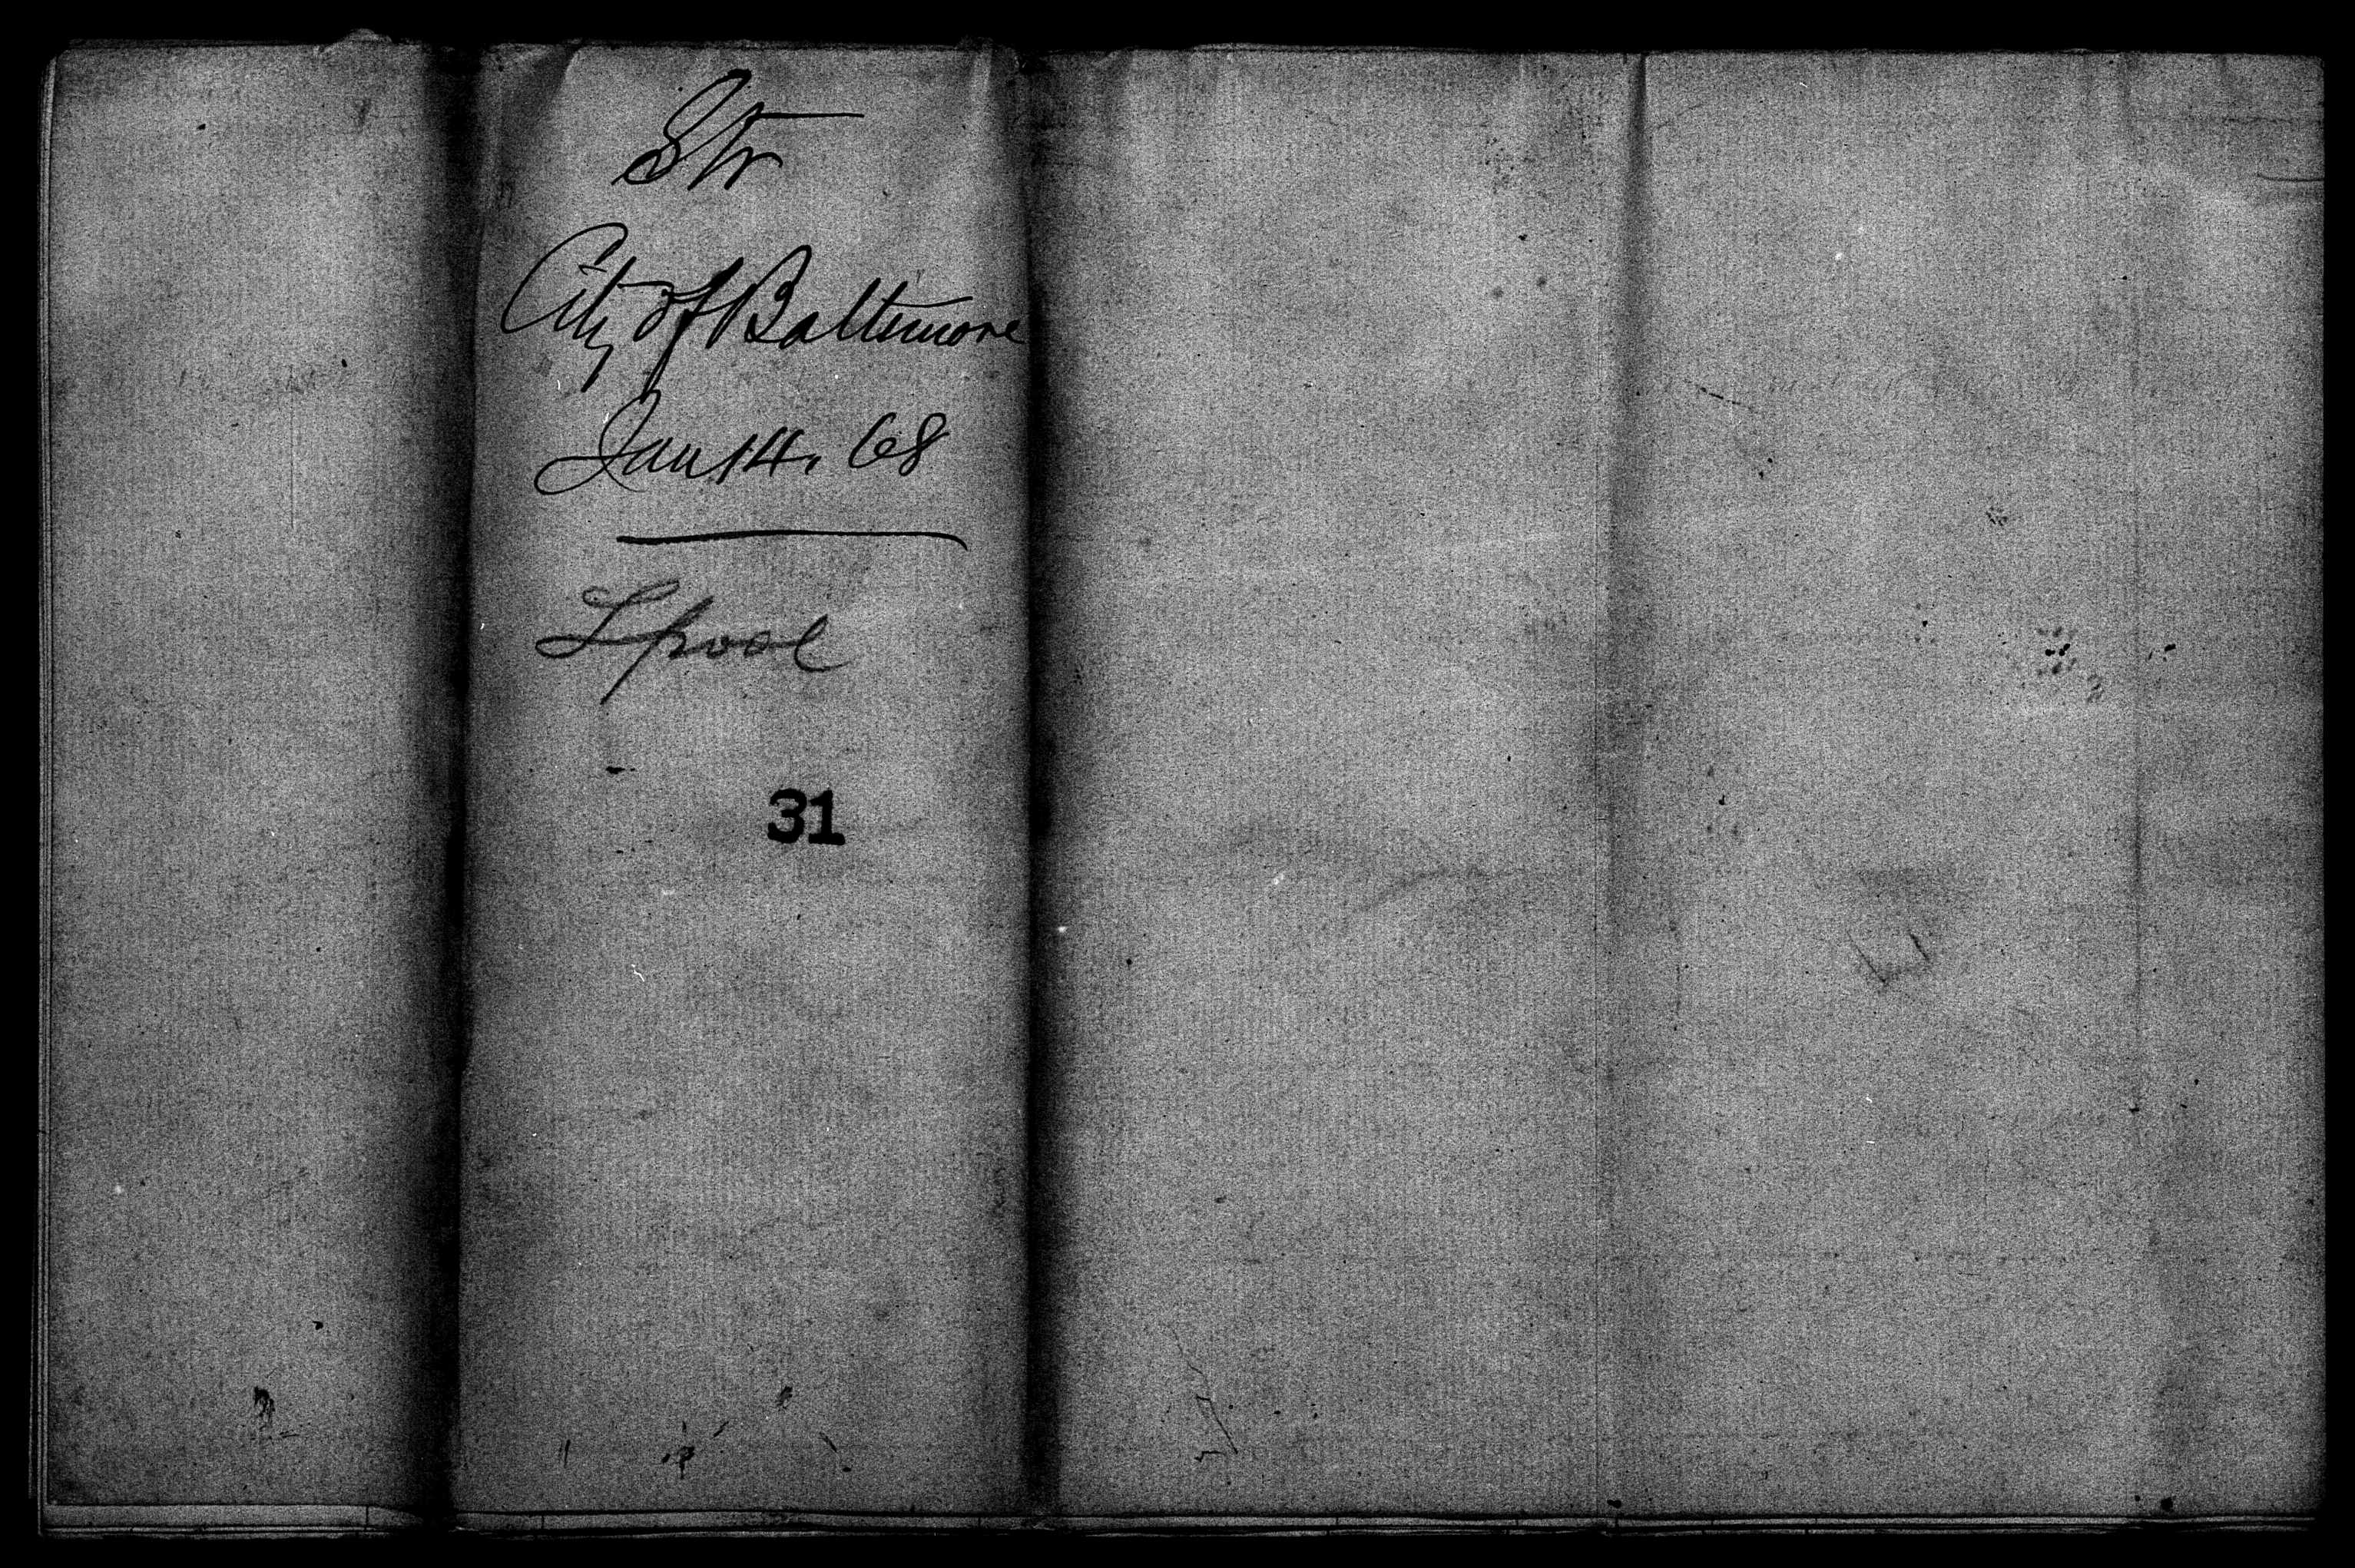 Str
City of Baltimore
Jan 14. 68
Lpool
31